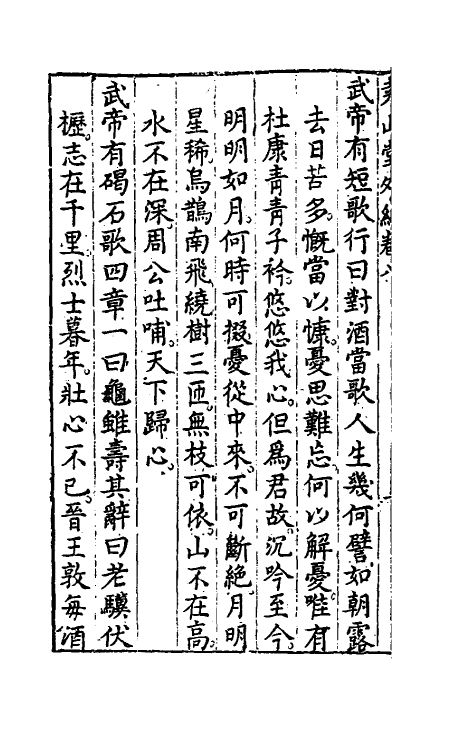 堯山堂外紀卷八
武帝有短歌行曰對酒當歌人生幾何譬如朝露
去日苦多。慨當以慷。憂思難忘。何以解憂。唯有
杜康青青子衿。悠悠我心。但爲君故。沉吟至今。
明明如月。何時可掇。憂從中來。不可斷絶。月明
星稀。烏鵲南飛。繞樹三匝。無枝可依。山不在高。
水不在深。周公吐哺。天下歸心。
武帝有碣石歌四章一曰龜雖壽其辭曰老驥伏
櫪。志在千里。烈士暮年。壯心不已。晉王敦每酒